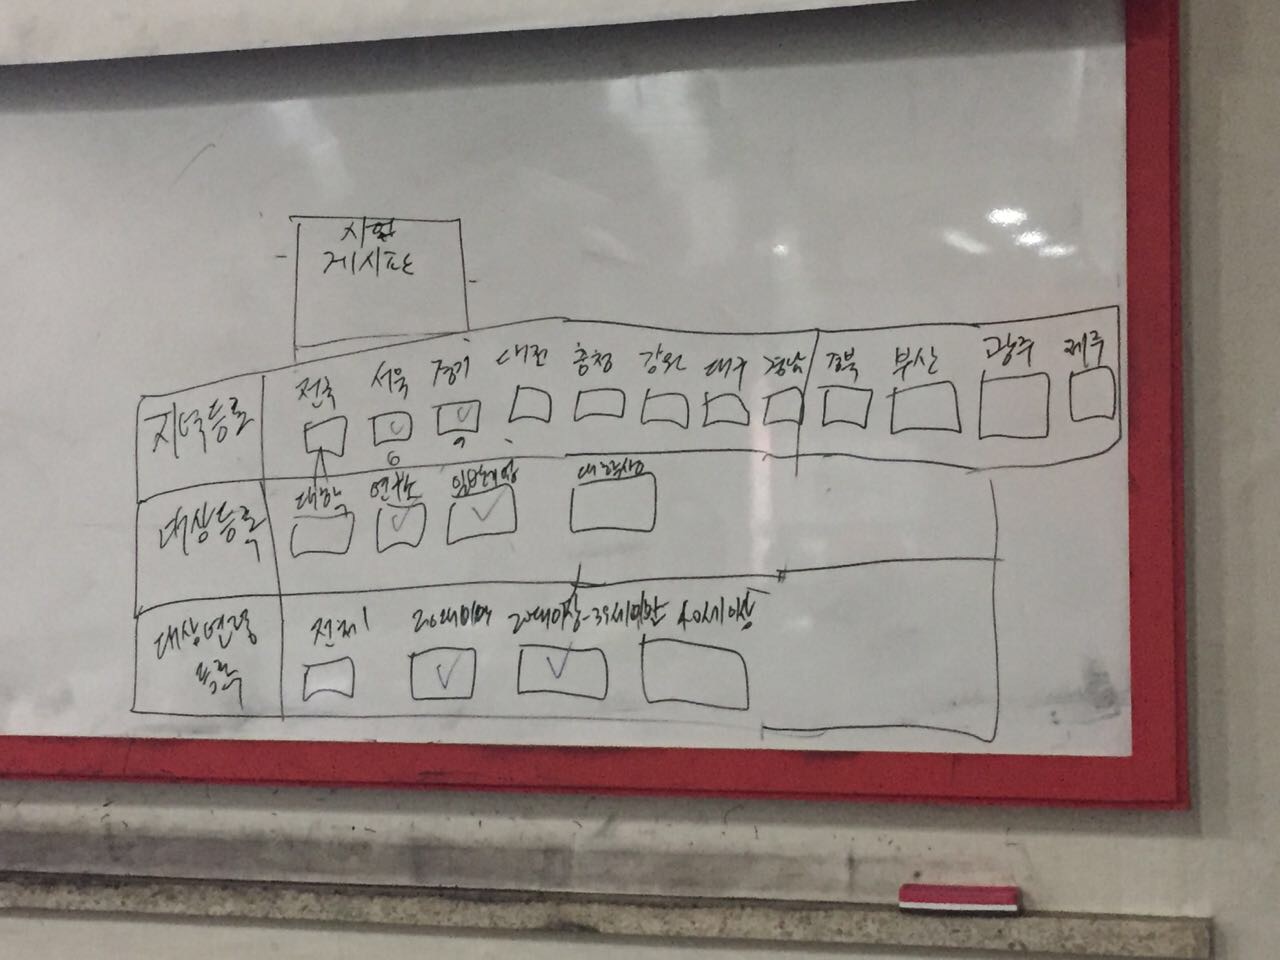 사업
게시판
지역등록
전국 서울 경기 대전 충청 강원 대구 경남 경북 부산 광주 제주
6 9
대상등록
대학 대학생
대상연령
등록
전체 20세미만 20세이상-39세미만 40세이상